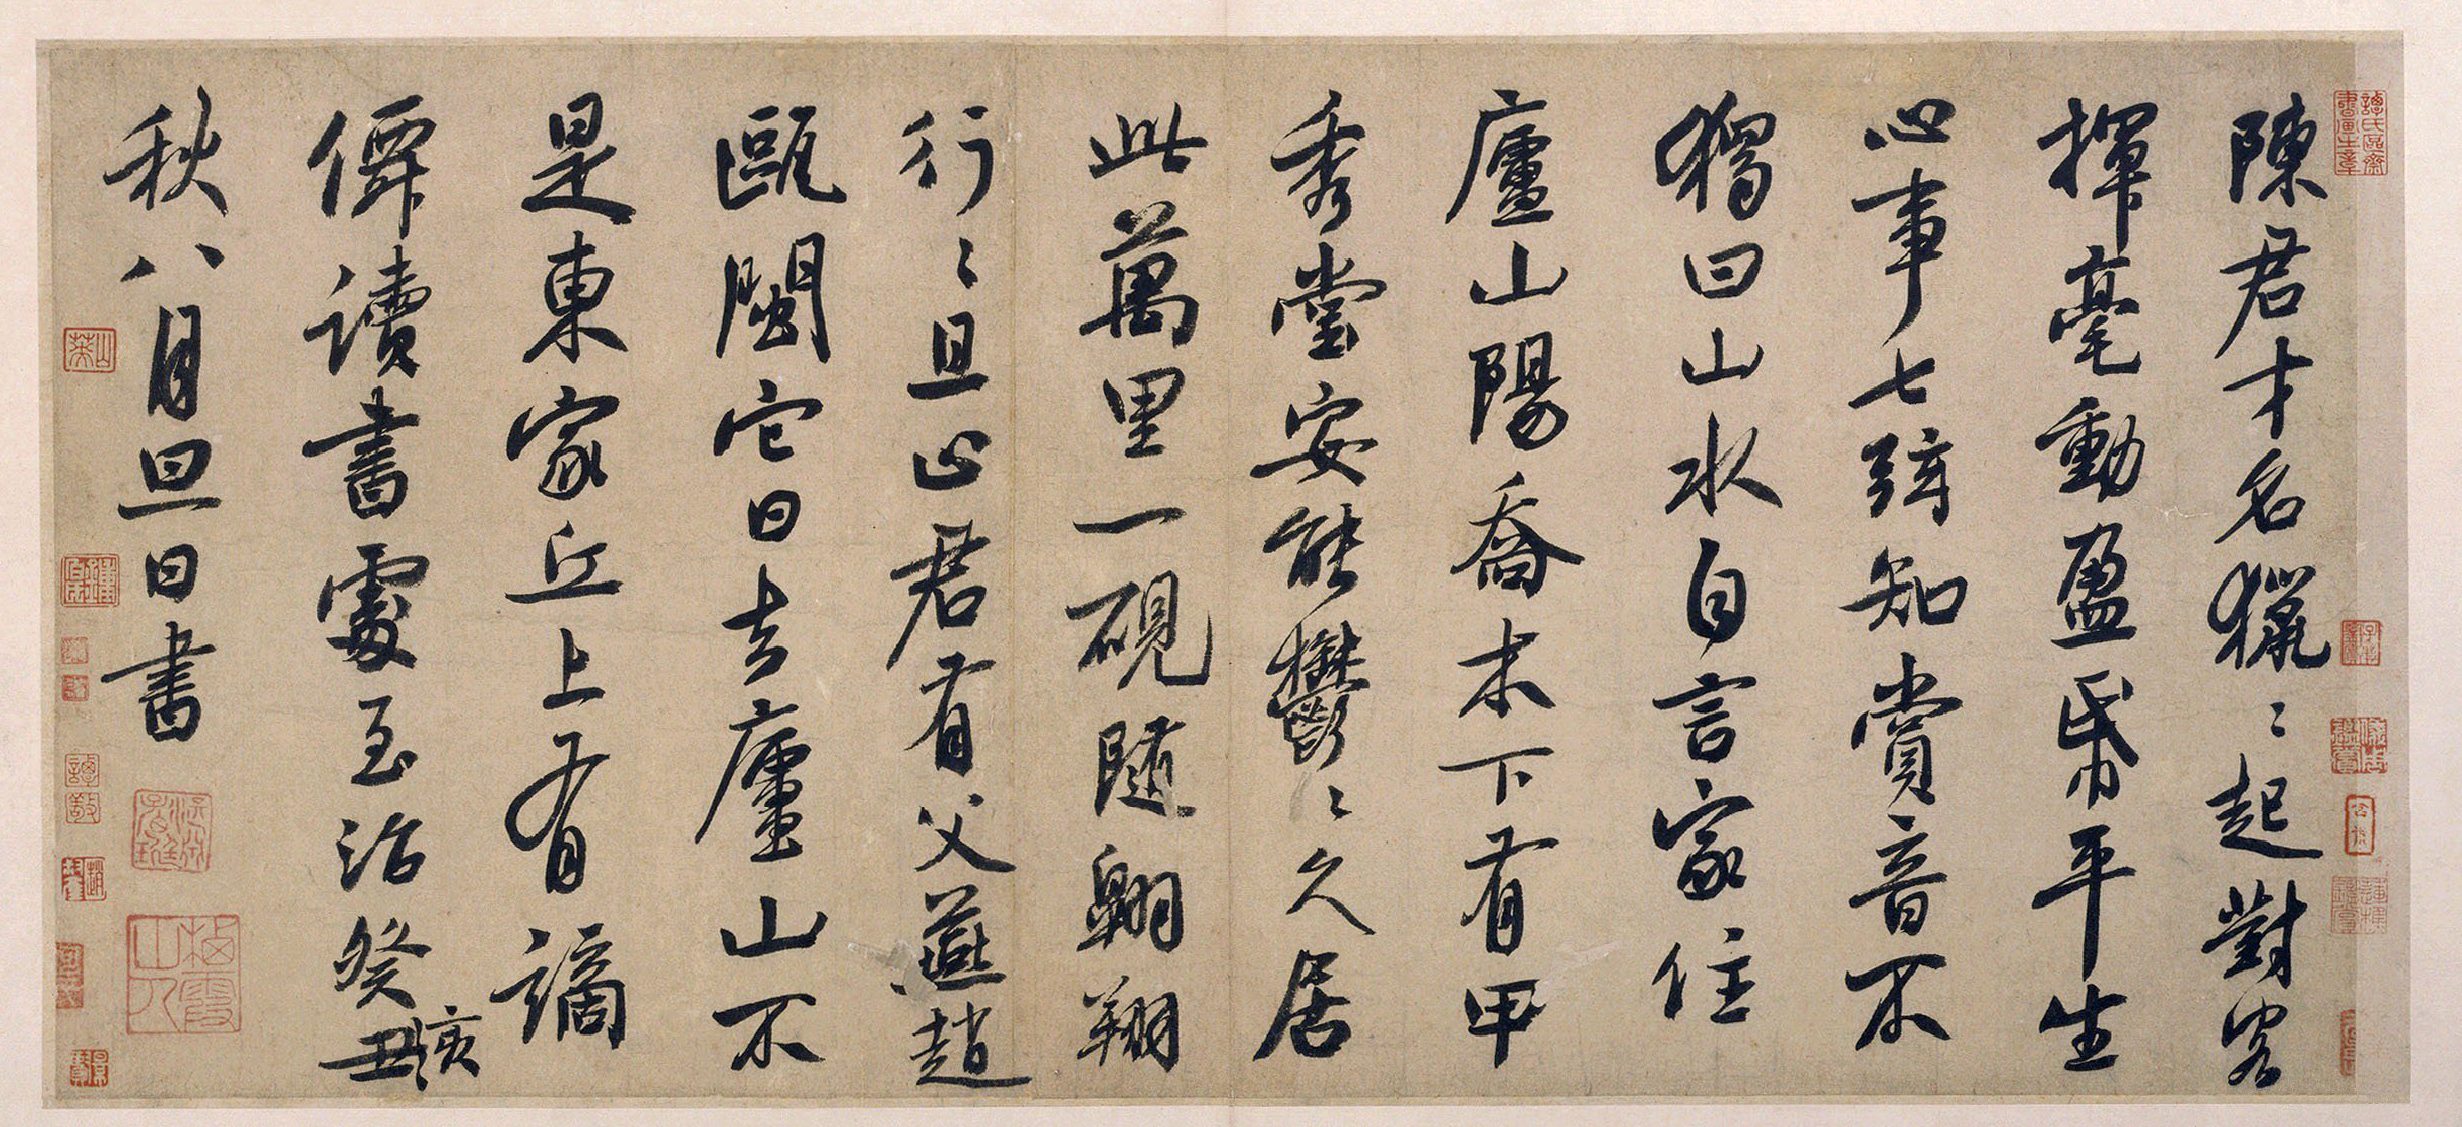 陳君才名獵〻起對客
揮毫動盈帋平生
心事七弦知賞音不
獨曰山水自言家住
廬山陽喬木下有甲
秀堂安能鬱〻久居
此萬里一硯隨翱翔
行〻且止君有父燕趙
甌閩它日去廬山不
是東家丘上有謫
僊讀書處至治癸丑亥
秋八月旦日書